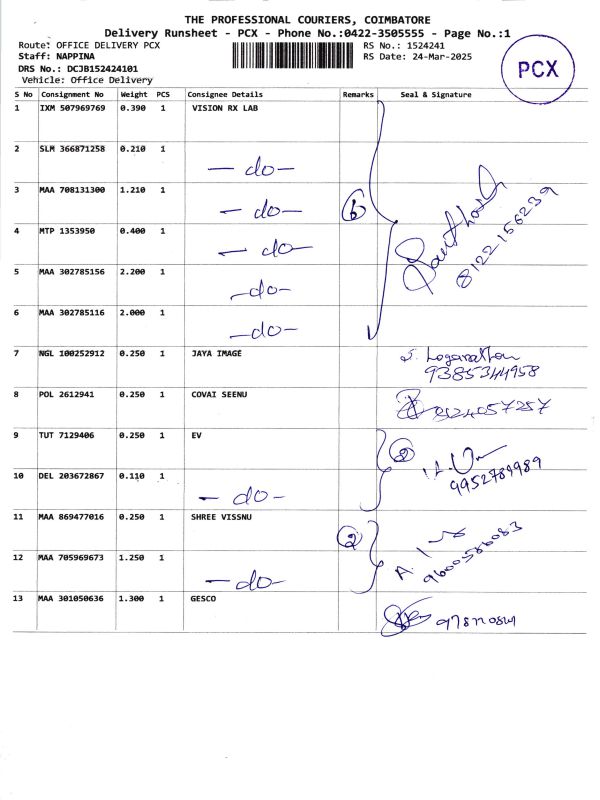 THE PROFESSIONAL COURIERS, COIMBATORE
Delivery Runsheet - PCX - Phone No.:0422-3505555 - Page No.:1
Route: OFFICE DELIVERY PCX
RS No.: 1524241
Staff: NAPPINA
RS Date: 24-Mar-2025
DRS No.: DCJB152424101
Vehicle: Office Delivery
PCX
S No Consignment No Weight PCS Consignee Details Remarks Seal & Signature
1 IXM 507969769 0.390 1 VISION RX LAB
2 SLM 366871258 0.210 1 — do —
3 MAA 708131300 1.210 1 — do — 6
4 MTP 1353950 0.400 1 — do —
Santhosh
8122156239
5 MAA 302785156 2.200 1 — do —
6 MAA 302785116 2.000 1 — do —
7 NGL 100252912 0.250 1 JAYA IMAGE S. Loganathan
9385344958
8 POL 2612941 0.250 1 COVAI SEENU
9 TUT 7129406 0.250 1 EV 2
9952789989
10 DEL 203672867 0.110 1 — do —
11 MAA 869477016 0.250 1 SHREE VISSNU 2
9600586083
12 MAA 705969673 1.250 1 — do —
13 MAA 301050636 1.300 1 GESCO